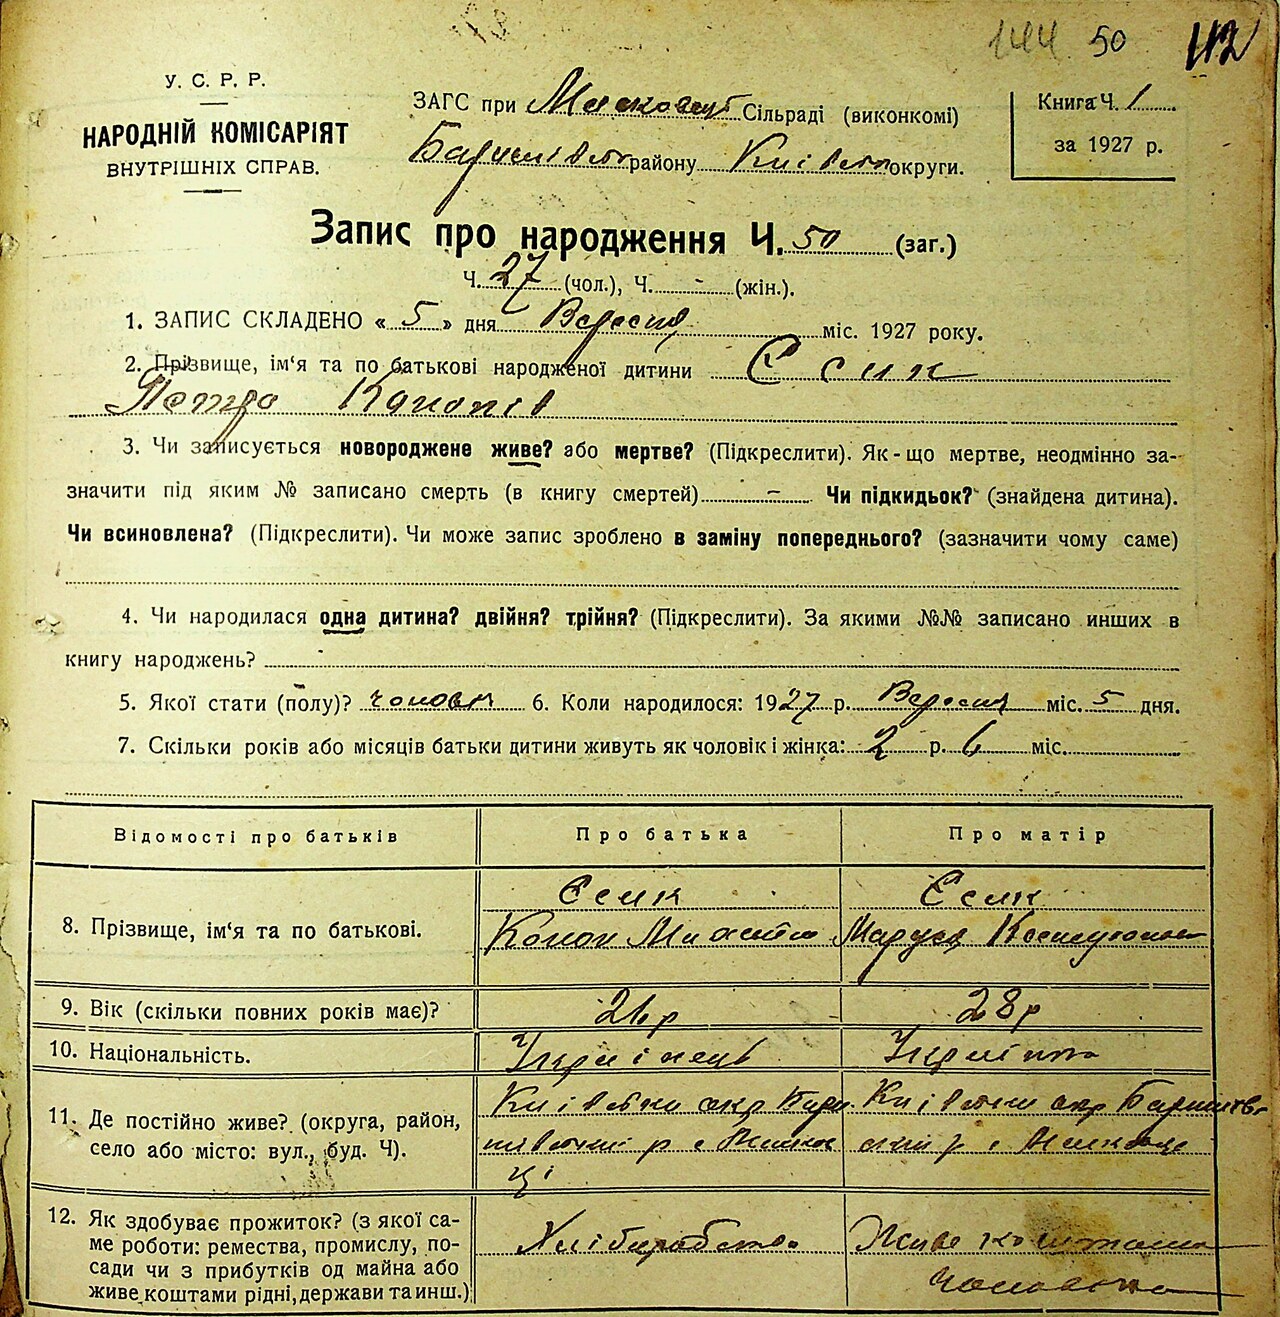 144 50 112
У. С. Р. Р.
НАРОДНІЙ КОМІСАРІЯТ
ВНУТРІШНІХ СПРАВ.
ЗАГС при Сільраді (виконкомі)
району округи.
Книга Ч. 1
за 1927 р.
Запис про народження Ч. 50 (заг.)
Ч. 27 (чол.), Ч. - (жін.).
1. ЗАПИС СКЛАДЕНО « 5 » дня Вересня міс. 1927 року.
2. Прізвище, ім‘я та по батькові народженої дитини Єсик
Петро Кононів
3. Чи записується новороджене живе? або мертве? (Підкреслити). Як-що мертве, неодмінно за-
значити під яким № записано смерть (в книгу смертей) - Чи підкидьок? (знайдена дитина).
Чи всиновлена? (Підкреслити). Чи може запис зроблено в заміну попереднього? (зазначити чому саме)
4. Чи народилася одна дитина? двійня? трійня? (Підкреслити). За якими №№ записано инших в
книгу народжень?
5. Якої стати (полу)? 6. Коли народилося: 1927 р. Вересня міс. 5 дня.
7. Скільки років або місяців батьки дитини живуть як чоловік і жінка: 2 р. 6 міс.
Відомості про батьків Про батька Про матір
8. Прізвище, ім‘я та по батькові. Єсик Конон Єсик Маруся
9. Вік (скільки повних років має)? 28 р
10. Національність. Українець Українка
11. Де постійно живе? (округа, район,
село або місто: вул., буд. Ч).
12. Як здобуває прожиток? (з якої са-
ме роботи: ремества, промислу, по-
сади чи з прибутків од майна або
живе коштами рідні, держави та инш.)
Хліборобство Живе коштами
чоловіка